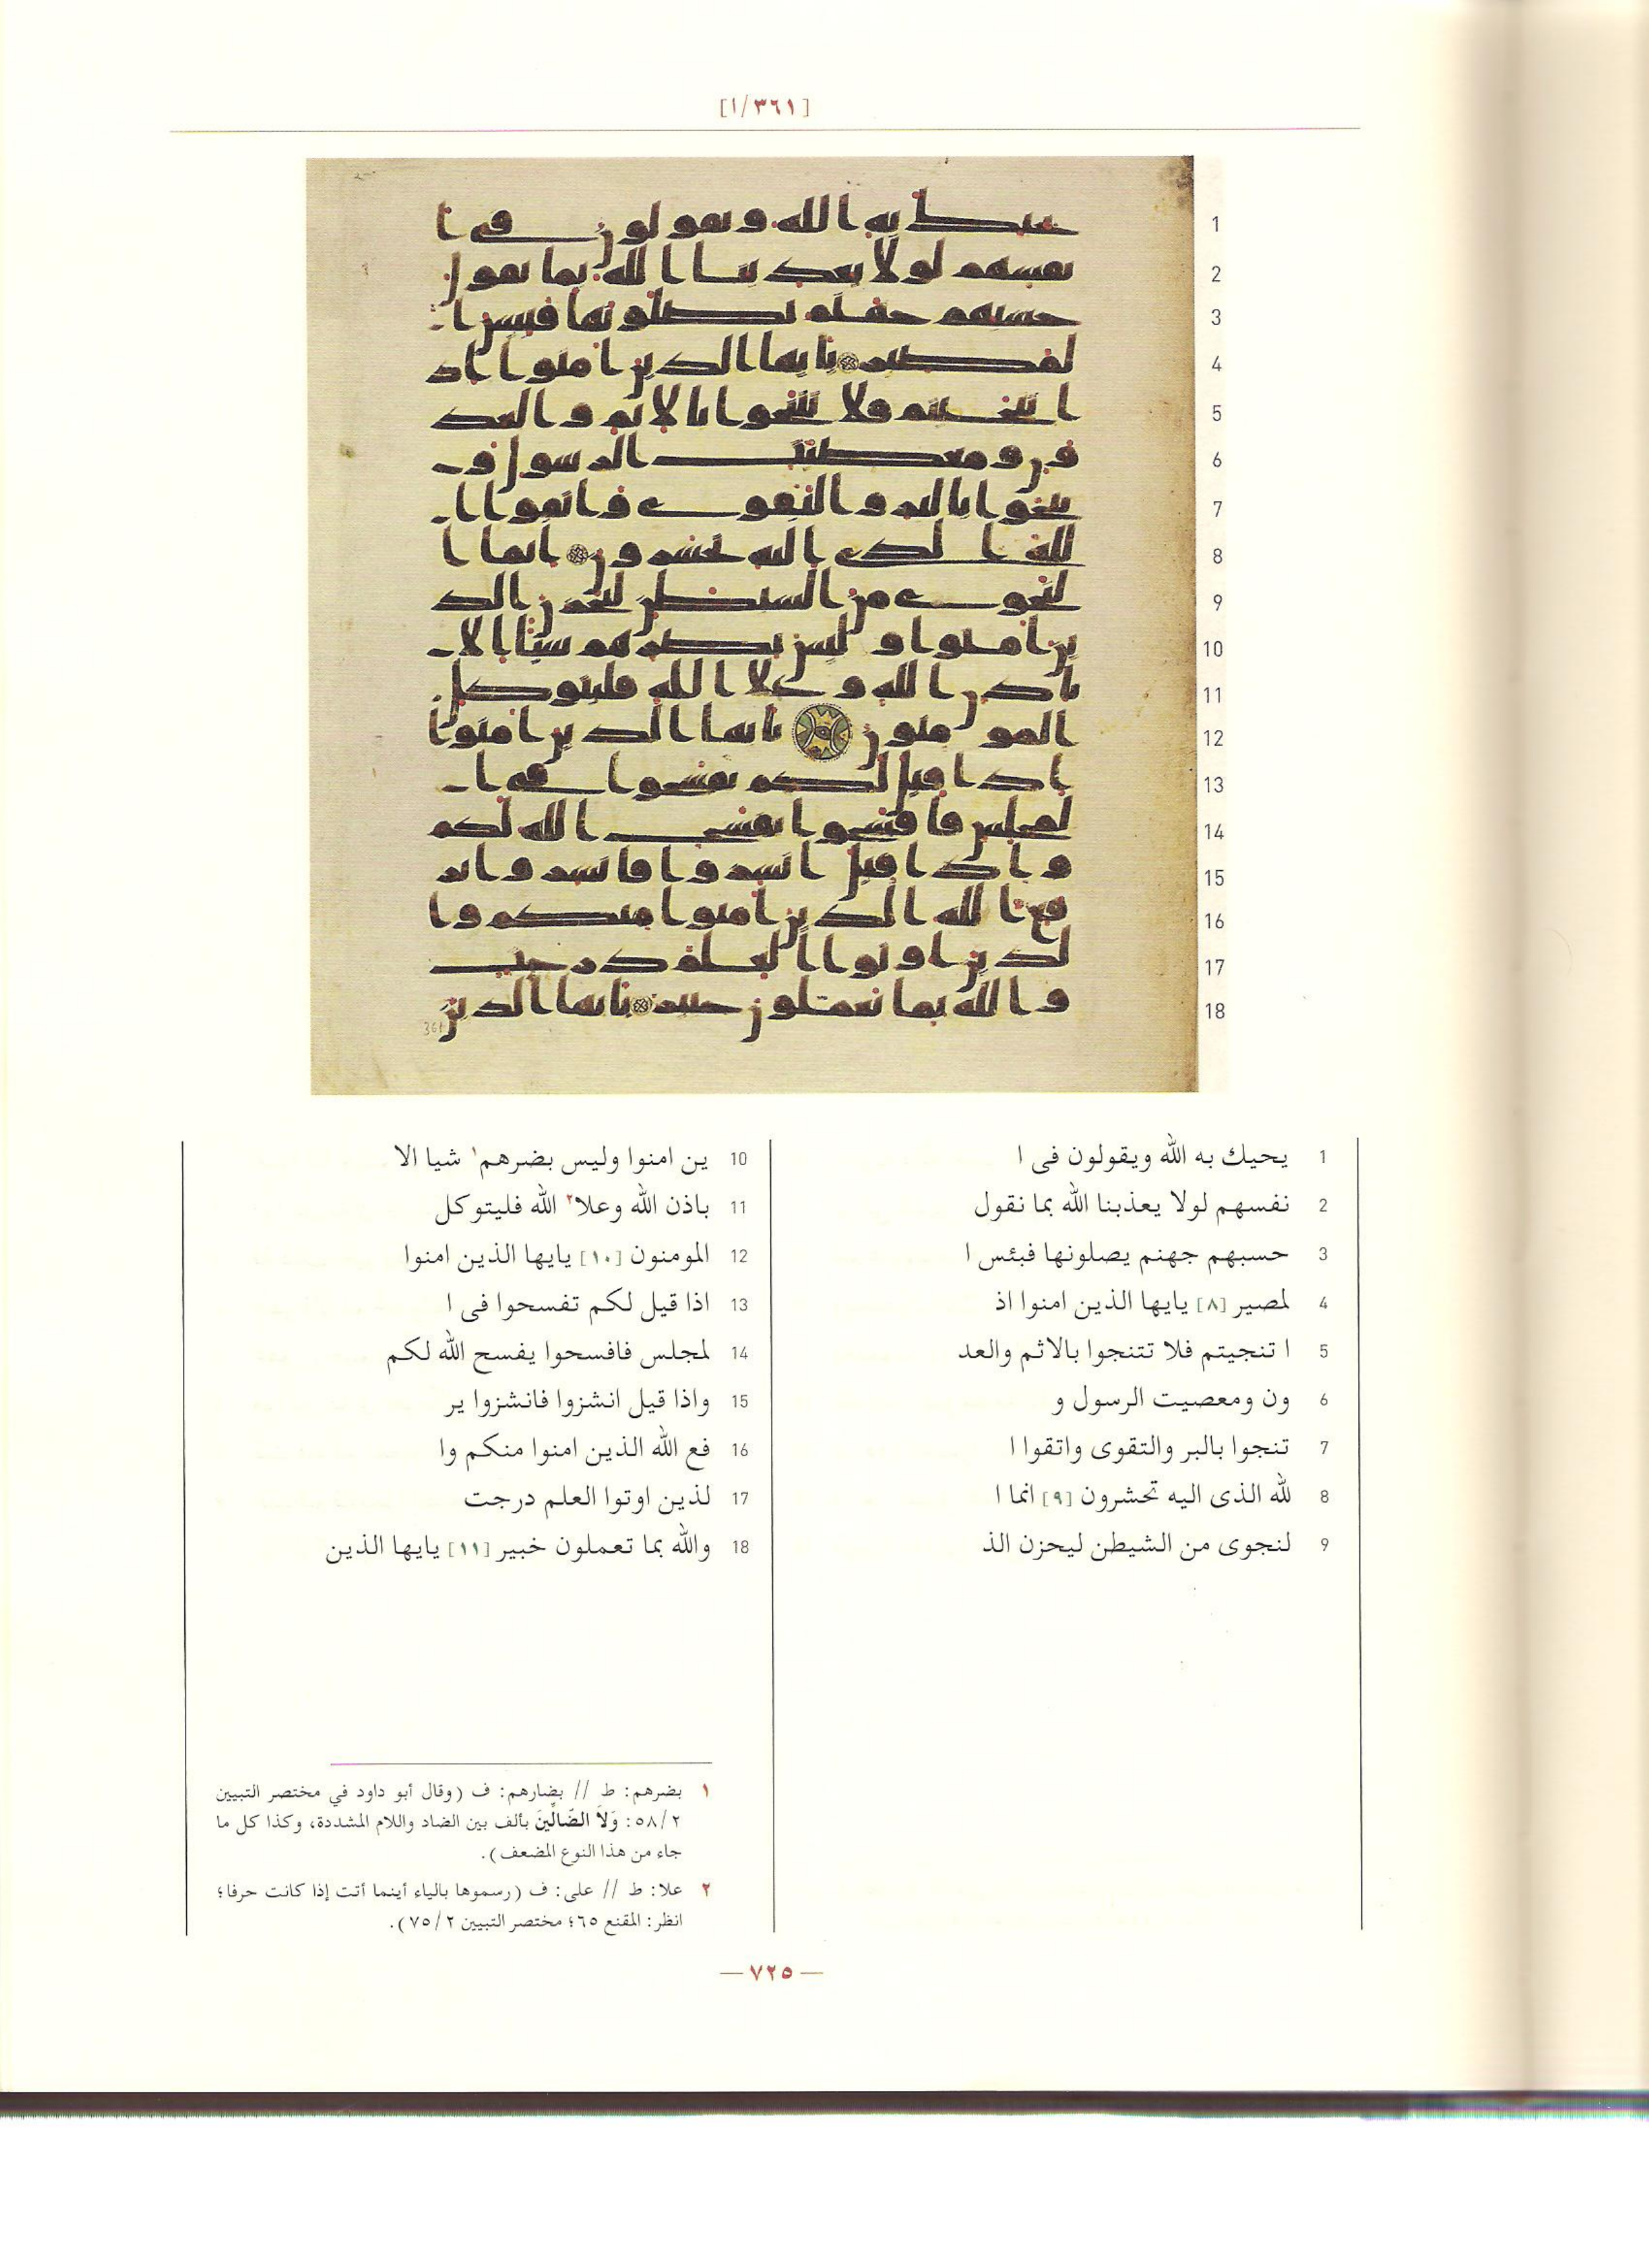 [١/٣٦١]
1 يحيك به الله ويقولون فى ا
2 نفسهم لولا يعذبنا الله بما نقول
3 حسبهم جهنم يصلونها فبئس ا
4 لمصير [٨] يايها الذين امنوا اذ
5 ا تنجيتم فلا تتنجوا بالاثم والعد
6 ون ومعصيت الرسول و
7 تنجوا بالبر والتقوى واتقوا ا
8 لله الذى اليه تحشرون [٩] انما ا
9 لنجوى من الشيطن ليحزن الذ
10 ين امنوا وليس بضرهم١ شيا الا
11 باذن الله وعلا٢ الله فليتوكل
12 المومنون [١٠] يايها الذين امنوا
13 اذا قيل لكم تفسحوا فى ا
14 لمجلس فافسحوا يفسح الله لكم
15 واذا قيل انشزوا فانشزوا ير
16 فع الله الذين امنوا منكم وا
17 لذين اوتوا العلم درجت
18 والله بما تعملون خبير [١١] يايها الذين
١ بضرهم: ط // بضارهم: ف (وقال أبو داود في مختصر التبيين
٥٨/٢: وَلاَ الضَّالِّينَ بألف بين الضاد واللام المشددة، وكذا كل ما
جاء من هذا النوع المضعف).
٢ علا: ط // على: ف (رسموها بالياء أينما أتت إذا كانت حرفا؛
انظر: المقنع ٦٥؛ مختصر التبيين ٧٥/٢).
— ٧٢٥ —